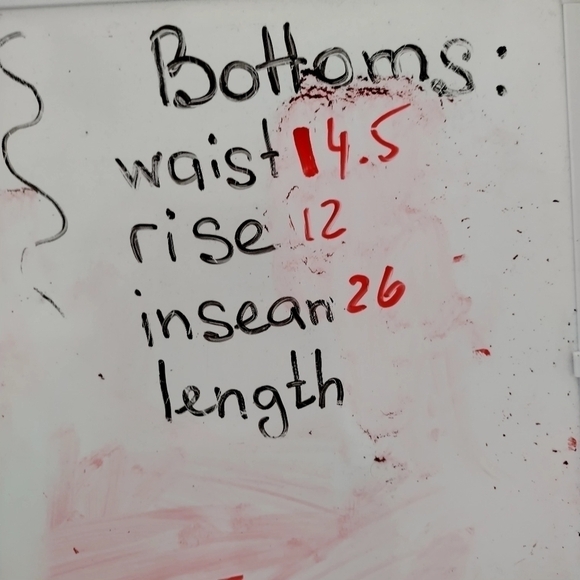 Bottoms:
waist 14.5
rise 12
insean 26
length